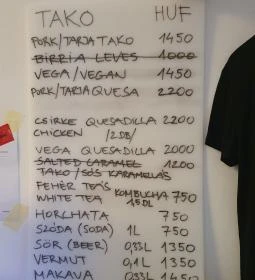 TAKO HUF
PORK/TARJA TAKO 1450
BIRRIA LEVES 1000
VEGA/VEGAN 1450
PORK/TARJA QUESA 2200
CSIRKE QUESADILLA 2200
CHICKEN /2DB/
VEGA QUESADILLA 2000
SALTED CARAMEL 1200
TAKO/SÓS KARAMELLÁS
FEHÉR TEÁS KOMBUCHA 750
WHITE TEA 1,5DL
HORCHATA 750
SZÓDA (SODA) 1L 750
SÖR (BEER) 0,33L 1350
VERMUT 0,1L 1350
MAKAVA 0,33L 1450